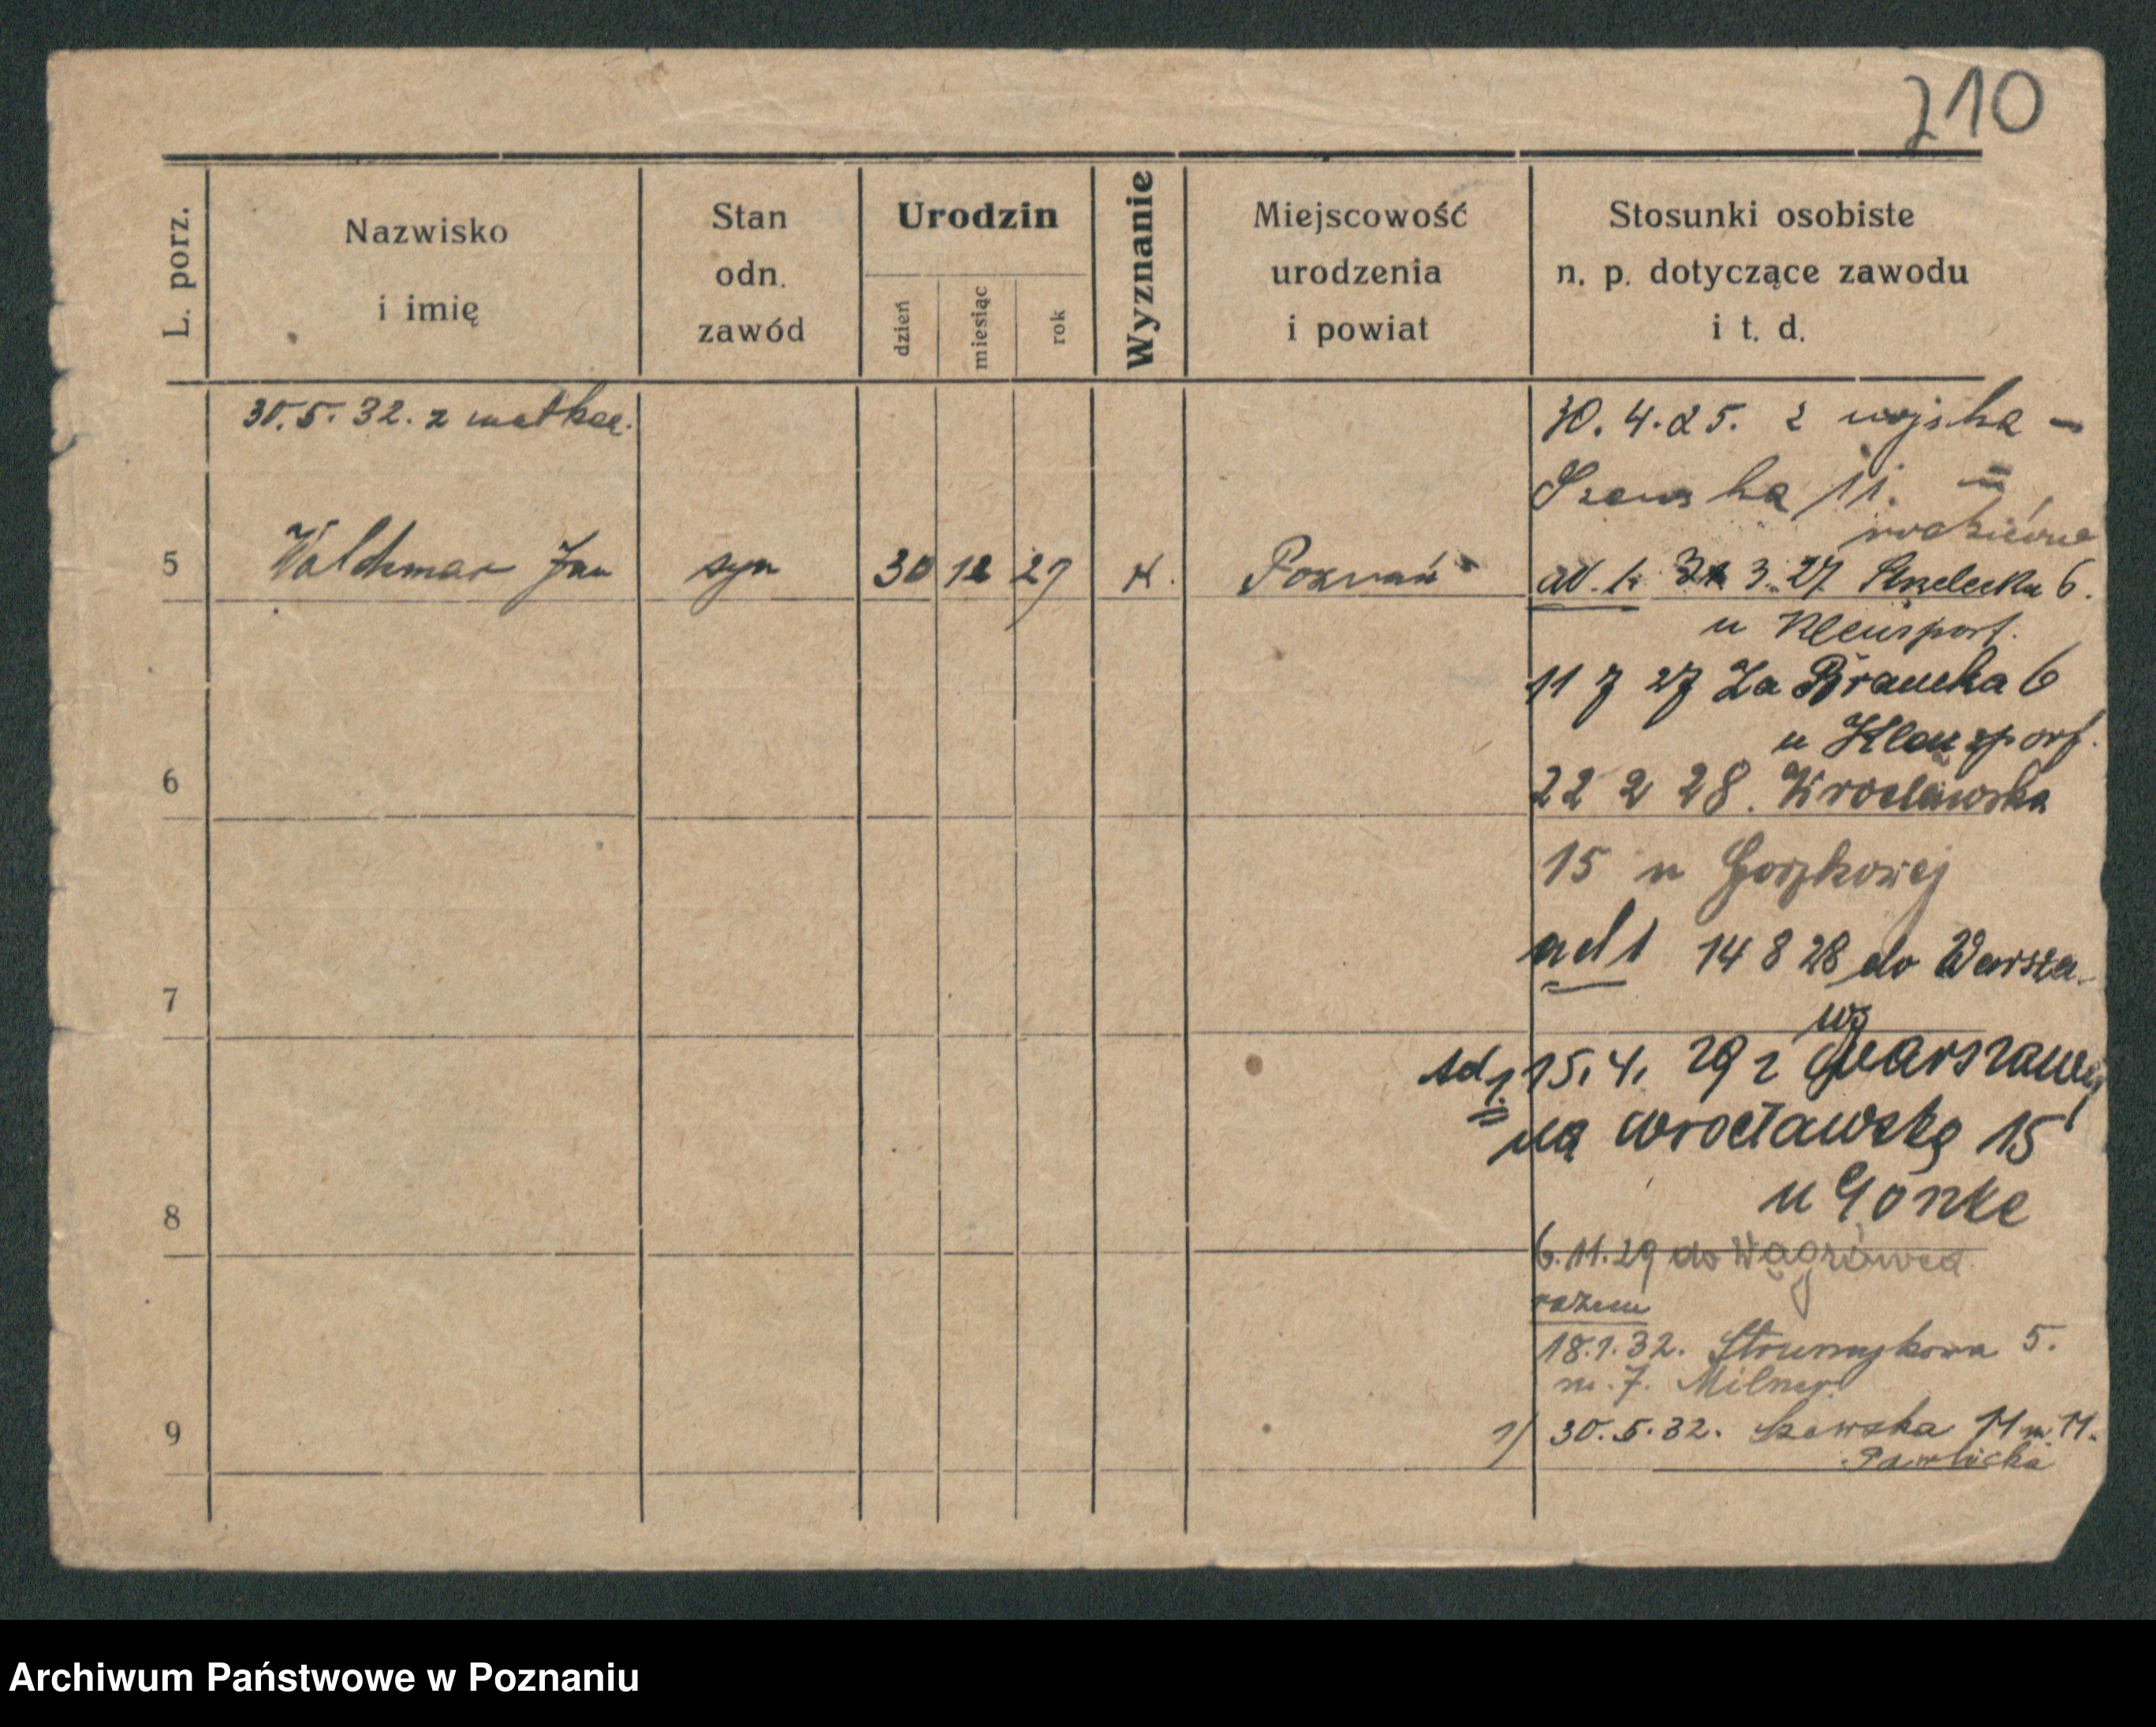 210
L. porz.
Nazwisko
i imię
Stan
odn.
zawód
Urodzin
dzień
miesiąc
rok
Wyznanie
Miejscowość
urodzenia
i powiat
Stosunki osobiste
n. p. dotyczące zawodu
i t. d.
30.5.32. z matką.
30.4.25. z wojska –
11.
rodziców
5 Waldemar Jan syn 30 12 27 K. Poznań
ad. 1. 3. 27 Strzelecka 6.
u
11 7 27 Za Bramka 6
u
6
22 2 28. Wrocławska
15 u
ad 1 14 8 28 do Warsza-
wy
7
ad 1. 15.4. 29 z Warszawy
na Wrocławską 15
u Gönke
8
6.11.29 do Wągrówca
razem
18.1.32. Strumykowa 5.
m. 7. Milner.
9
1) 30.5.32. Szewska 11 m 11.
Pawlicka
Archiwum Państwowe w Poznaniu